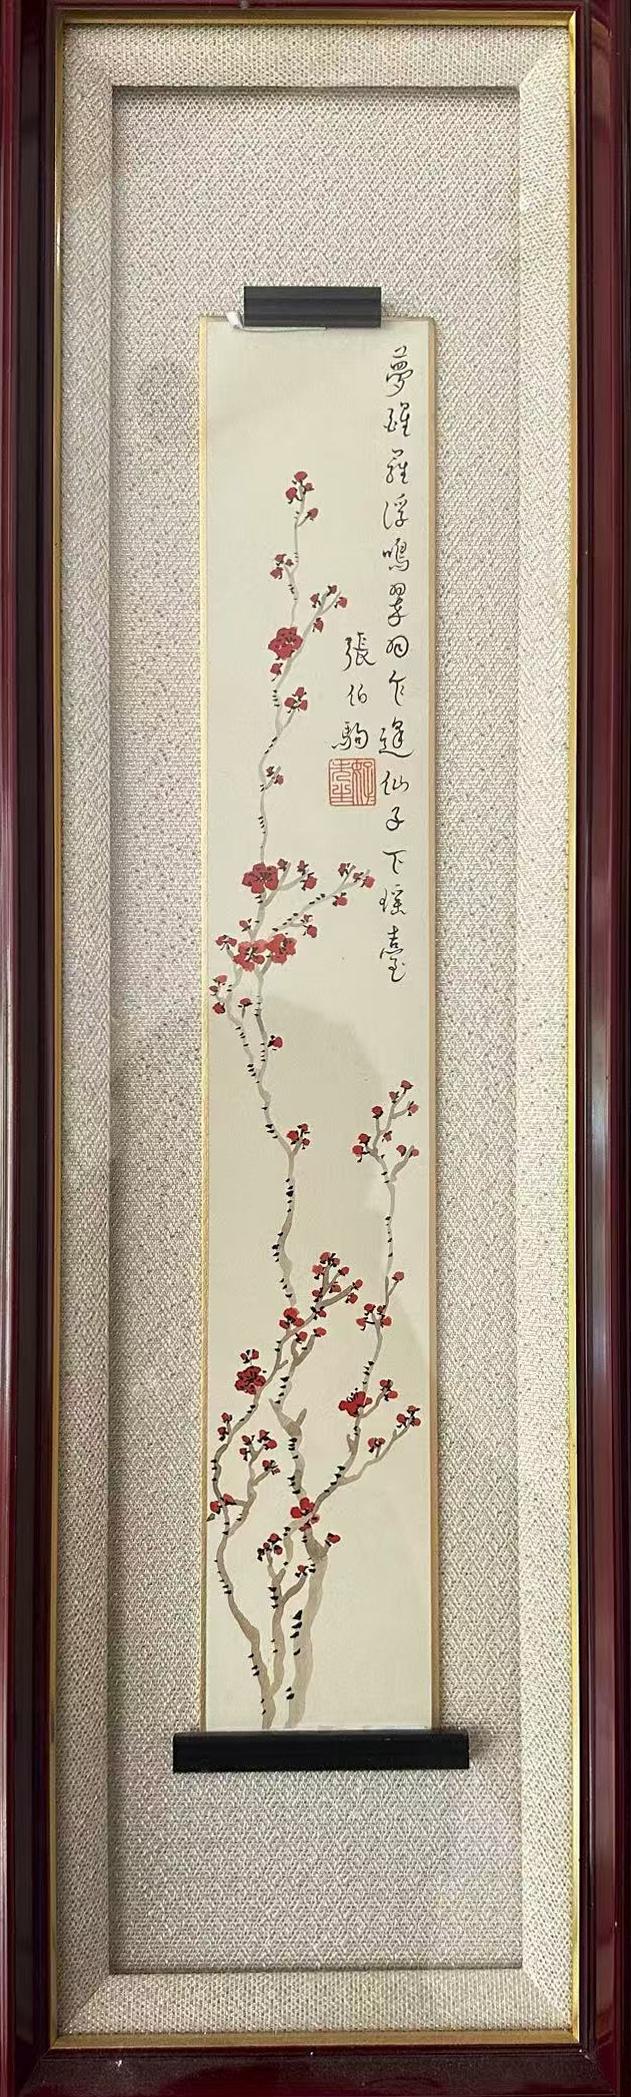 夢醒羅浮鳴翠羽乍逢仙子下瑤臺
張伯駒